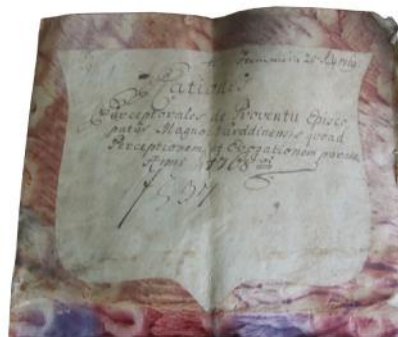 Rationes
Perceptorales de Proventu Episco
patus Magno Varadinensis quoad
Perceptionem et Erogationem
Anni 1768